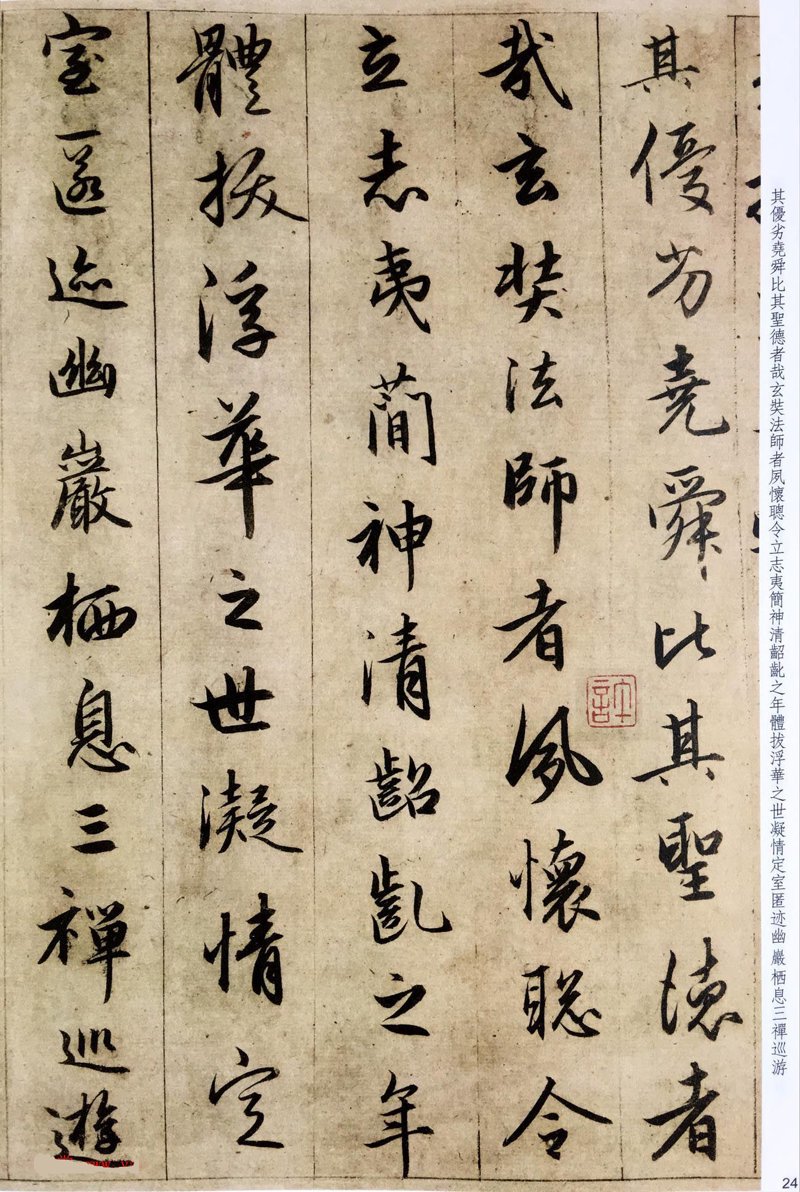 其優劣堯舜比其聖德者
哉玄奘法師者夙懷聰令
立志夷簡神清齠齔之年
體拔浮華之世凝情定
室匿迹幽巖栖息三禪巡遊
許
其優劣堯舜比其聖德者哉玄奘法師者夙懷聰令立志夷簡神清齠齔之年體拔浮華之世凝情定室匿迹幽巖栖息三禪巡游
24